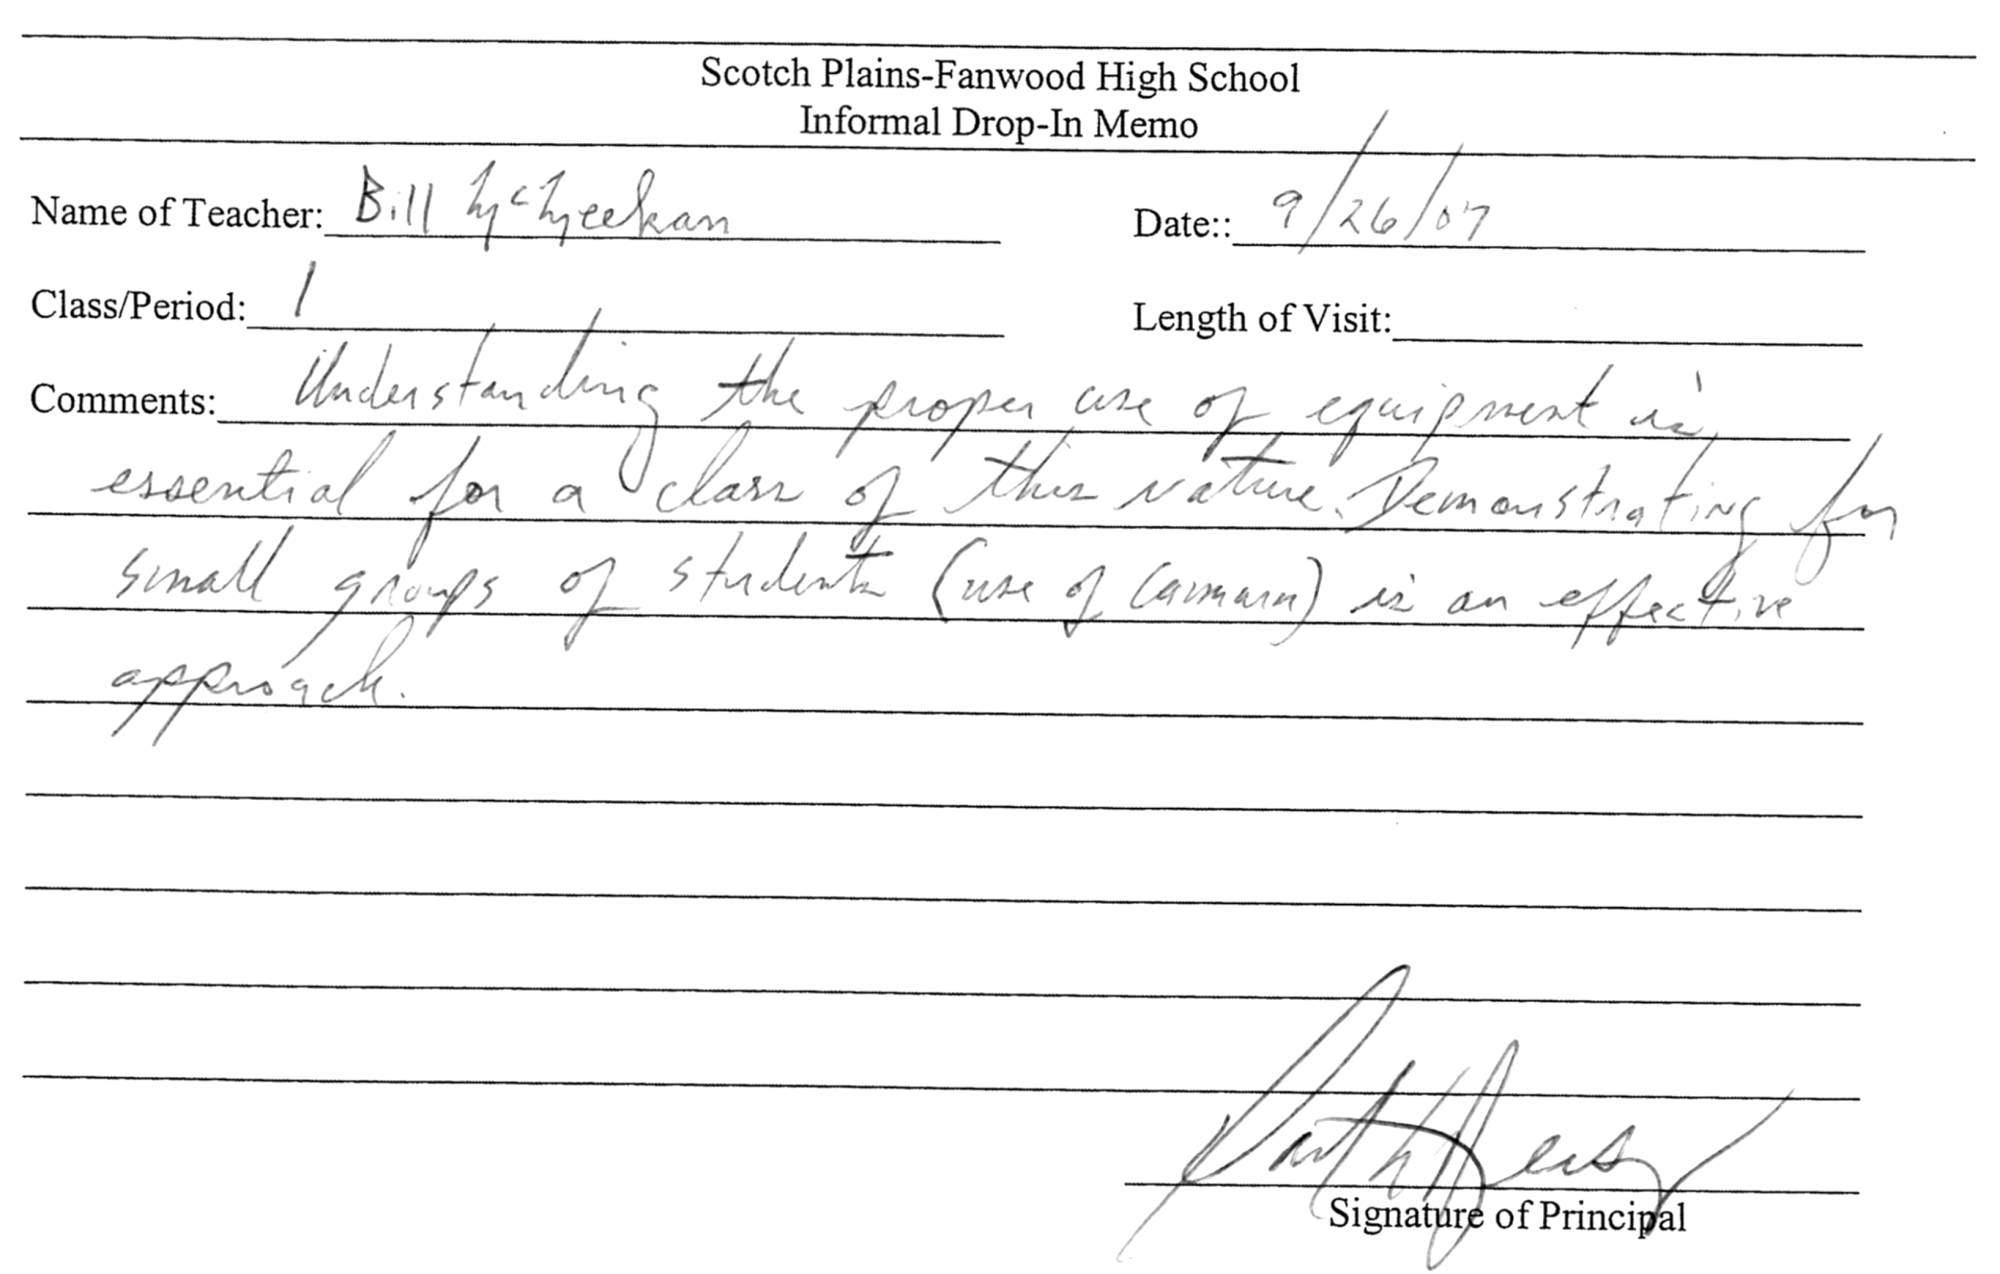 Scotch Plains-Fanwood High School
Informal Drop-In Memo
Name of Teacher: Bill McMeekan Date:: 9/26/07
Class/Period: 1 Length of Visit:
Comments: Understanding the proper use of equipment is
essential for a class of this nature. Demonstrating for
small groups of students (use of camara) is an effective
approach.
Signature of Principal